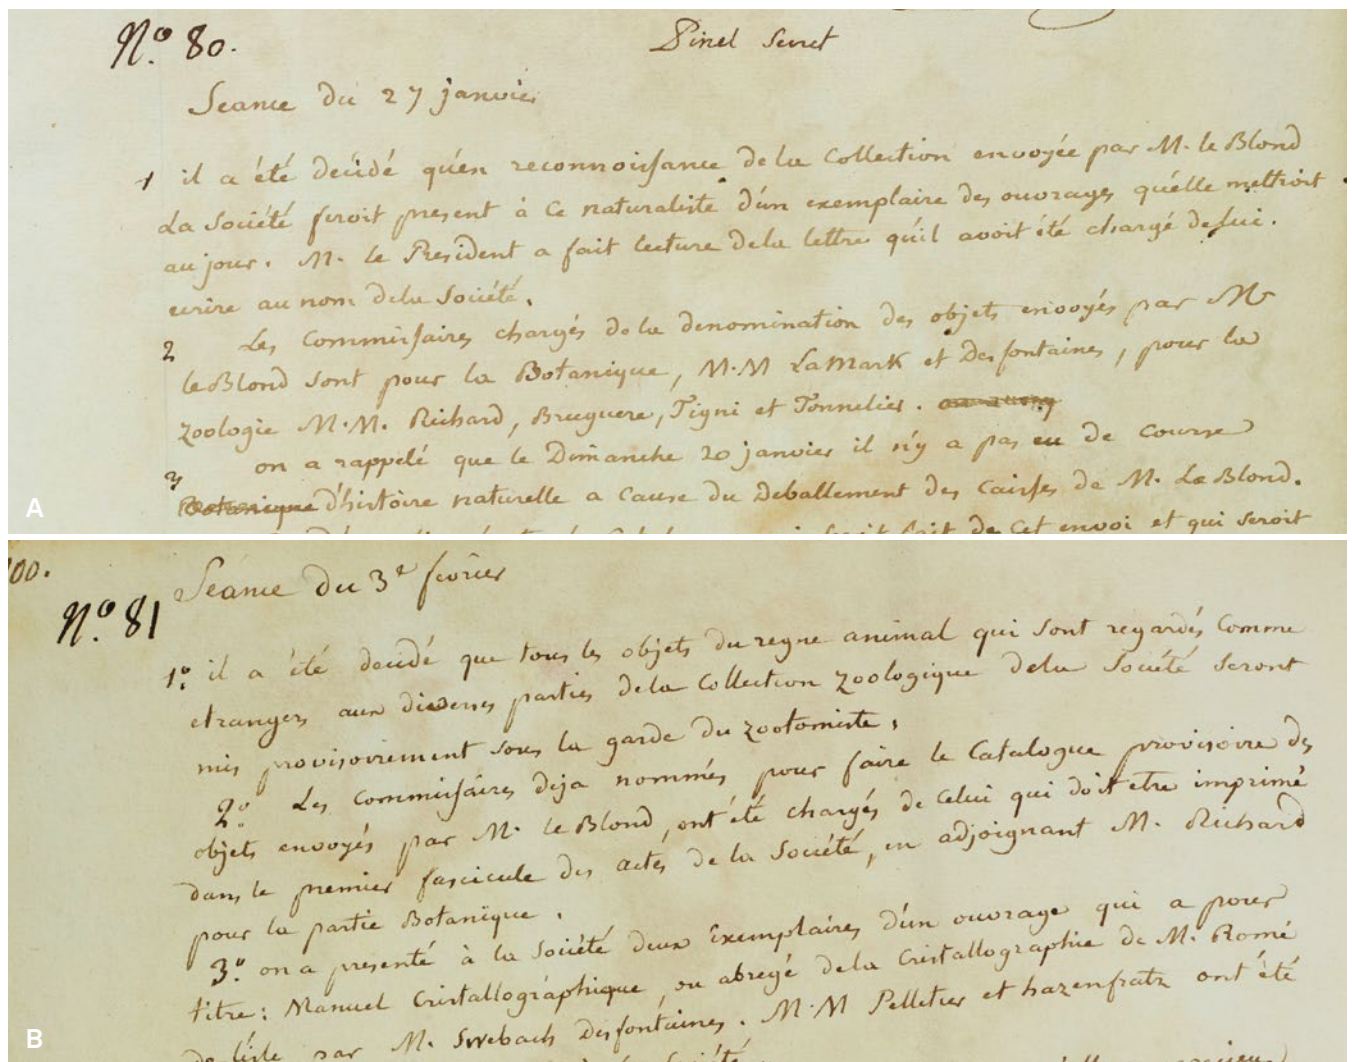 Nº. 80.
Pinel Secret
Seance du 27 janvier
1 il a été décidé qu'en reconnoissance de la Collection envoyée par M. le Blond
La Société feroit present à ce naturaliste d'un exemplaire des ouvrages qu'elle mettroit
au jour. M. le President a fait lecture de la lettre qu'il avoit été chargé de lui.
ecrire au nom de la Société.
2 Les Commissaires chargés de la denomination des objets envoyés par Mr
le Blond sont pour la Botanique, M.M LaMark et Desfontaines, pour la
zoologie M.M. Richard, Bruguere, Tigni et Tonnelier.
3 on a rappelé que le Dimanche 20 janvier il n'y a pas eu de course
Botanique d'histoire naturelle a cause du Deballement des caisses de M. Le Blond.
fait de cet envoi et qui seroit
A
100.
Nº. 81
Séance du 3e fevrier
1º. il a été decidé que tous les objets du regne animal qui sont regardés comme
etrangers aux diverses parties de la Collection zoologique de la Société seront
mis provisoirement sous la garde du zootomiste.
2º. Les commissaires deja nommés pour faire le Catalogue provisoire des
objets envoyés par M. le Blond, ont été chargés de celui qui doit etre imprimé
dans le premier fascicule des actes de la Société, en adjoignant M. Richard
pour la partie Botanique.
3º. on a presenté à la Société deux Exemplaires d'un ouvrage qui a pour
titre: Manuel Cristallographique, ou abregé de la Cristallographie de M. Romé
de lisle par M. Swebach desfontaines. M.M Pelletier et hazenfratz ont été
Société
B